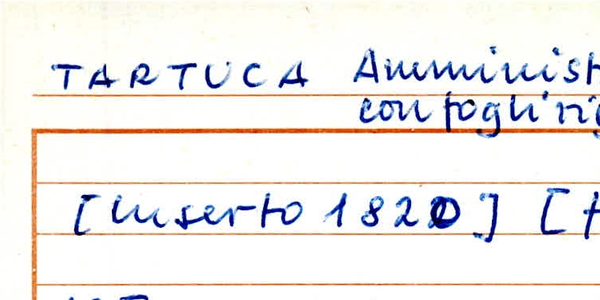 TARTUCA Amminist
con fogli rig
[Inserto 1820] [